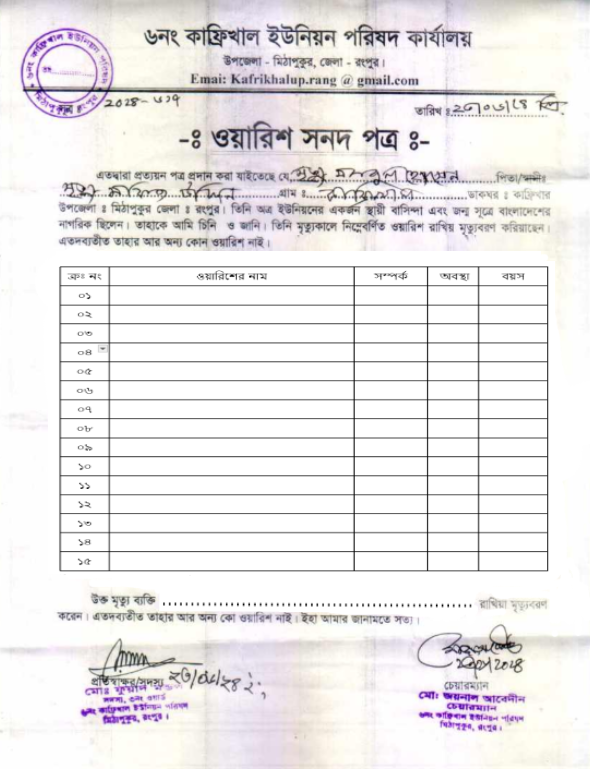 ৬নং কাফ্রিখাল ইউনিয়ন পরিষদ কার্যালয়
উপজেলা - মিঠাপুকুর, জেলা - রংপুর।
Emai: Kafrikhalup.rang @ gmail.com
তারিখ ঃ
-ঃ ওয়ারিশ সনদ পত্র ঃ-
এতদ্বারা প্রত্যয়ন পত্র প্রদান করা যাইতেছে যে, পিতা/স্বামীঃ
গ্রাম ঃ ডাকঘর ঃ কাফ্রিখাল
উপজেলা ঃ মিঠাপুকুর জেলা ঃ রংপুর। তিনি অত্র ইউনিয়নের একজন স্থায়ী বাসিন্দা এবং জন্ম সূত্রে বাংলাদেশের
নাগরিক ছিলেন। তাহাকে আমি চিনি ও জানি। তিনি মৃত্যুকালে নিম্নেবর্ণিত ওয়ারিশ রাখিয়া মৃত্যুবরণ করিয়াছেন।
এতদব্যতীত তাহার আর অন্য কোন ওয়ারিশ নাই।
ক্রঃ নং ওয়ারিশের নাম সম্পর্ক অবস্থা বয়স
০১
০২
০৩
০৪
০৫
০৬
০৭
০৮
০৯
১০
১১
১২
১৩
১৪
১৫
উক্ত মৃত্যু ব্যক্তি রাখিয়া মৃত্যুবরণ
করেন। এতদব্যতীত তাহার আর অন্য কো ওয়ারিশ নাই। ইহা আমার জানামতে সত্য।
প্রতিস্বাক্ষর/সদস্য
৬নং কাফ্রিখাল ইউনিয়ন পরিষদ
মিঠাপুকুর, রংপুর।
চেয়ারম্যান
মোঃ জয়নাল আবেদীন
চেয়ারম্যান
৬নং কাফ্রিখাল ইউনিয়ন পরিষদ
মিঠাপুকুর, রংপুর।